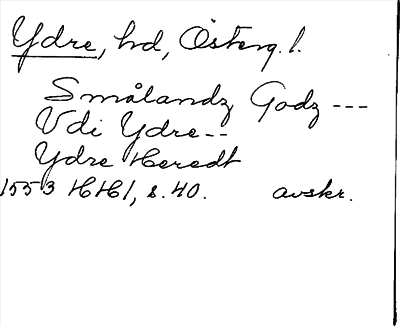 Ydre, hd, Österg. l.
Smålandz Godz ---
Vdi Ydre--
Ydre Heredt
1553 HH 1, s. 40. avskr.